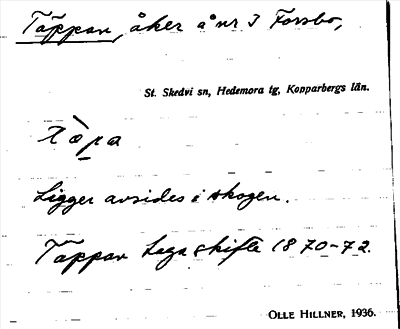 Täppan, åker å nr 3 Forsbo,
St. Skedvi sn, Hedemora tg, Kopparbergs län.
Ligger avsides i skogen.
Täppan Laga skifte 1870-72.
OLLE HILLNER, 1936.